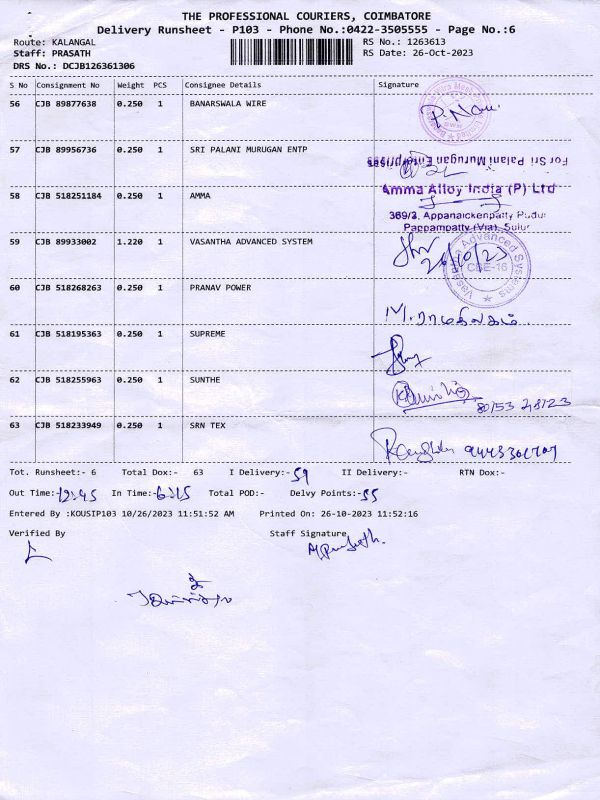 THE PROFESSIONAL COURIERS, COIMBATORE
Delivery Runsheet - P103 - Phone No.:0422-3505555 - Page No.:6
Route: KALANGAL RS No.: 1263613
Staff: PRASATH RS Date: 26-Oct-2023
DRS No.: DCJB126361306
S No Consignment No Weight PCS Consignee Details Signature
56 CJB 89877638 0.250 1 BANARSWALA WIRE
57 CJB 89956736 0.250 1 SRI PALANI MURUGAN ENTP
For Sri Palani Murugan Enterprises
58 CJB 518251184 0.250 1 AMMA
Amma Alloy India (P) Ltd
369/3, Appanaickenpatty Pudur
Pappampatty (Via), Sulur
59 CJB 89933002 1.220 1 VASANTHA ADVANCED SYSTEM
26/10/23
Vasantha Advanced Systems
CBE-16
60 CJB 518268263 0.250 1 PRANAV POWER
61 CJB 518195363 0.250 1 SUPREME
62 CJB 518255963 0.250 1 SUNTHE
63 CJB 518233949 0.250 1 SRN TEX
Tot. Runsheet:- 6 Total Dox:- 63 I Delivery:- 59 II Delivery:- RTN Dox:-
Out Time:-12:45 In Time:-6:15 Total POD:- Delvy Points:-55
Entered By :KOUSIP103 10/26/2023 11:51:52 AM Printed On: 26-10-2023 11:52:16
Verified By Staff Signature